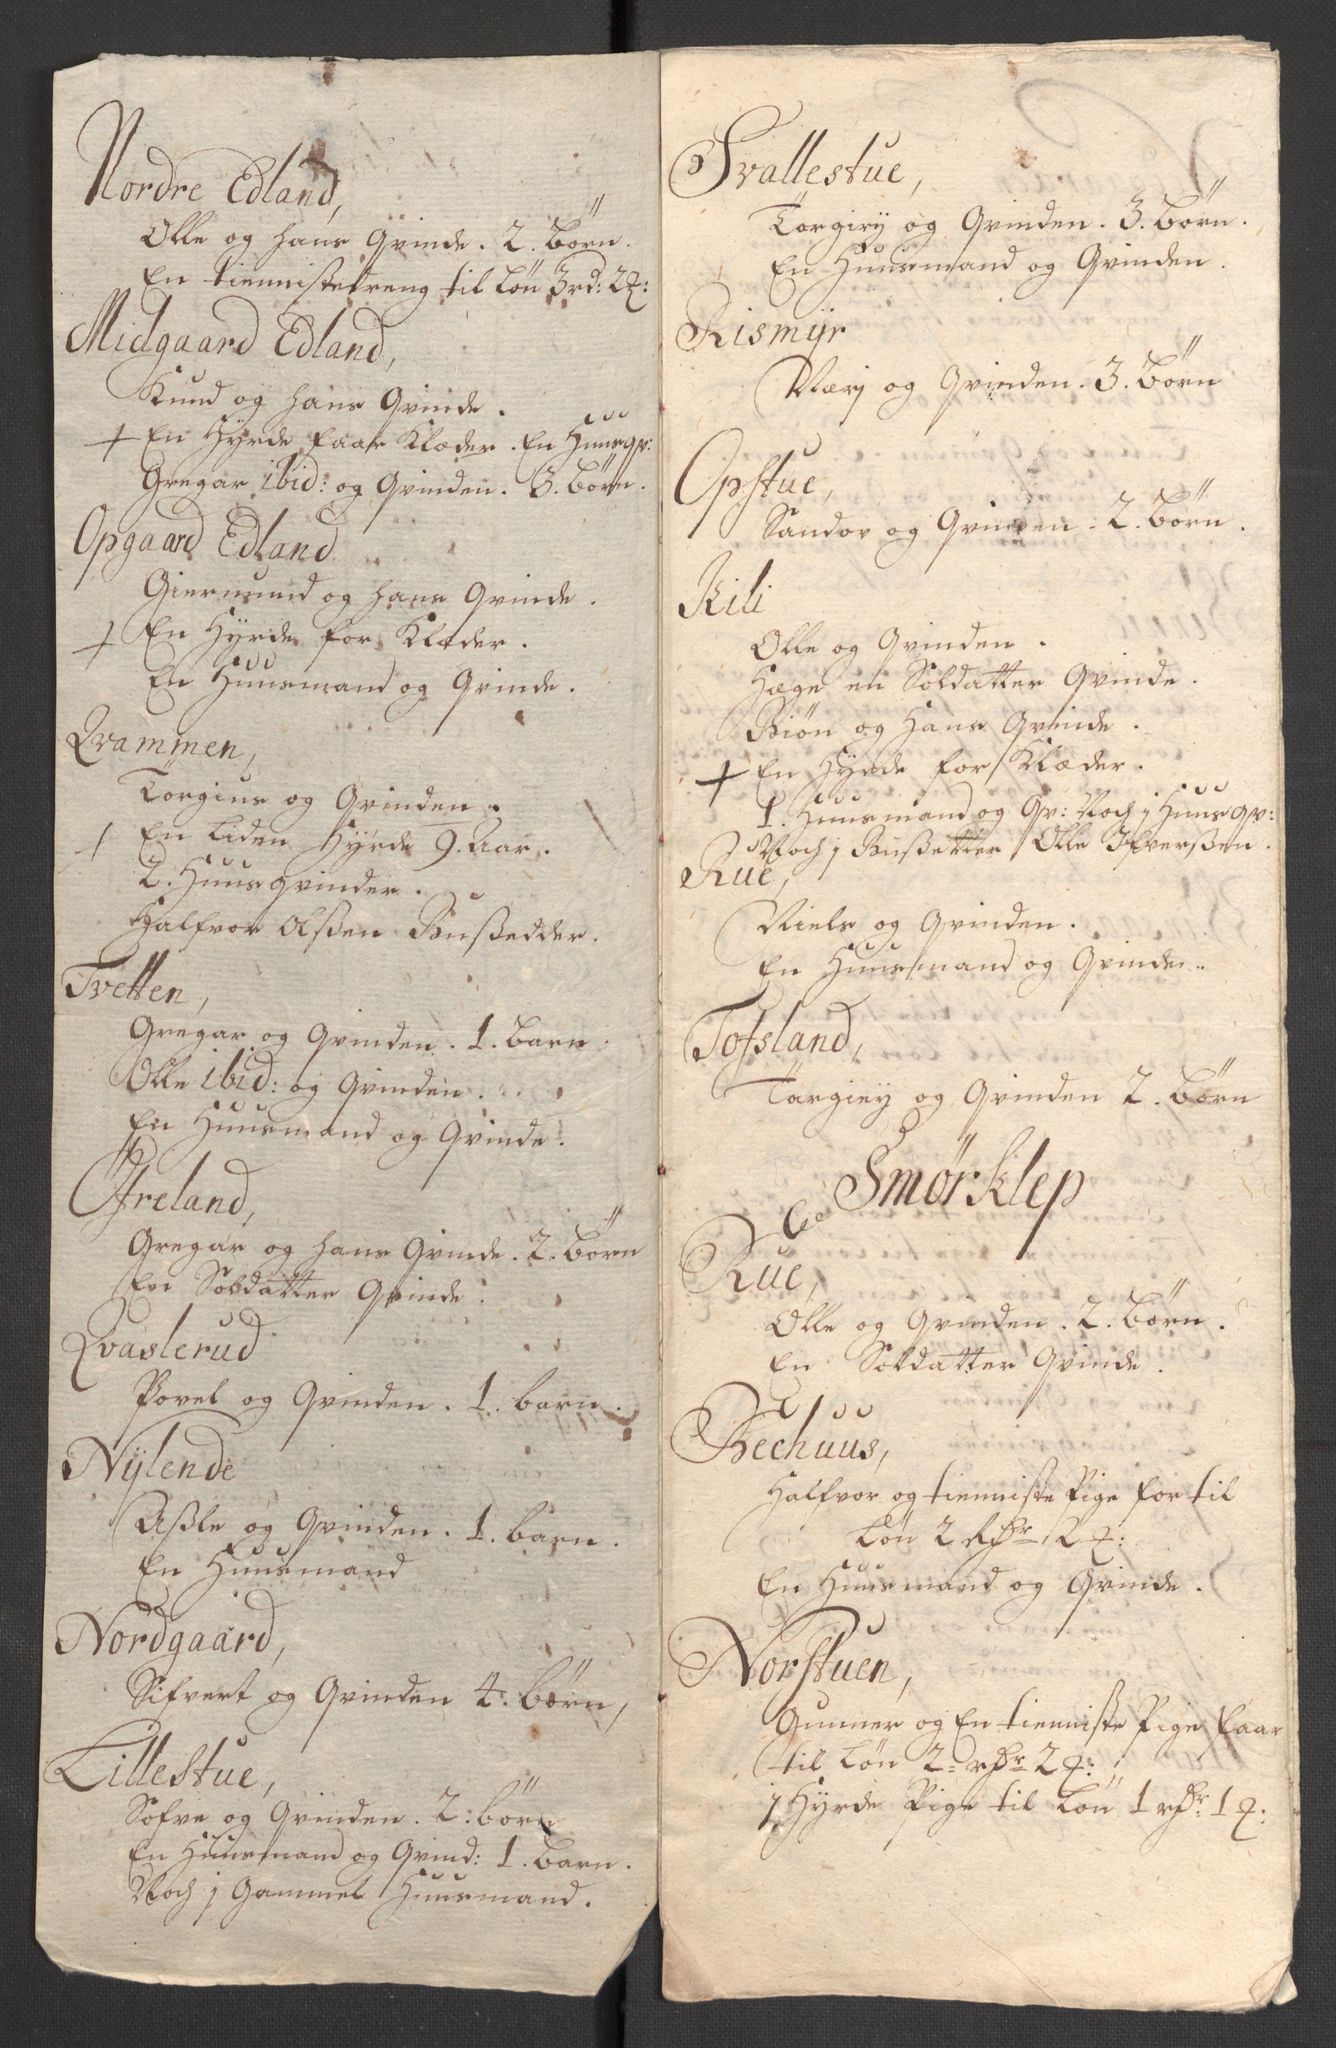 Nordre Edland,
Olle og hans Qvinde. 2. Börn.
En tienniste dreng til Lön 3 rd: 2
Midgaard Edland,
Knud og hans Qvinde.
+ En Hyrde faar Klæder. En Huus qv:
Gregar ibid: og Qvinden. 3. Börn.
Opgaard Edland
Giermund og hans Qvinde.
+ En Hyrde for Klæder.
En Huusmand og Qvinde.
Qvammen,
Torgius og Qvinden.
+ En Liden Hyrde 9. Aar.
2. Huusqvinder.
Halfvor Olßen Bußedder.
Tvetten,
Gregar og Qvinden. 1. Barn.
Olle ibid: og Qvinden.
En Huusmand og Qvinde.
Öfreland,
Gregar og hans Qvinde. 2. Börn
En Soldatter Qvinde.
Qvaslerud
Povel og Qvinden. 1. barn.
Nÿlende
Aßle og Qvinden. 1. barn.
En Huusmand
Nordgaard,
Sifvert og Qvinden 4. börn,
Lillestue,
Sofve og Qvinden. 2: börn
En Huusmand og Qvind: 1. Barn.
Noch j Gammel Huusmand.
Svallestue,
Torgiey og Qvinden. 3. Börn.
En Huusmand og Qvinden.
Rismÿr
Nærj og Qvinden. 3. Börn
Opstue,
Sandov og Qvinden. 2. Börn.
Kili
Olle og Qvinden.
Hæge en Soldatter Qvinde.
Biön og Hans Qvinde.
+ En Hyrde for Klæder.
1. Huusmand og Qv: Noch j Huus qv:
Noch j Bußetter Olle Ifverßen.
Rue,
Niels og Qvinden.
En Huusmand og Qvinde.
Tofsland,
Targiey og Qvinden 2. Börn
Smørklep
Rue,
Olle og Qvinden. 2. Börn.
En Soldatter Qvinde.
Bechuus,
Halfvor og tienniste Pige for til
Lön 2 Rdr 2
En Huusmand og Qvinde.
Norstuen,
Gunner og En tienniste Pige faar
til Lön 2 rdr 2
j Hyrde Pige til Lön 1 rdr. 1